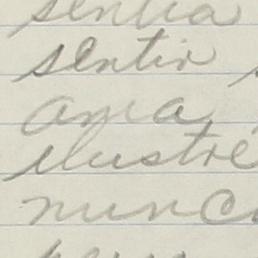 sentia
sentir
ama
ilustre
nunc